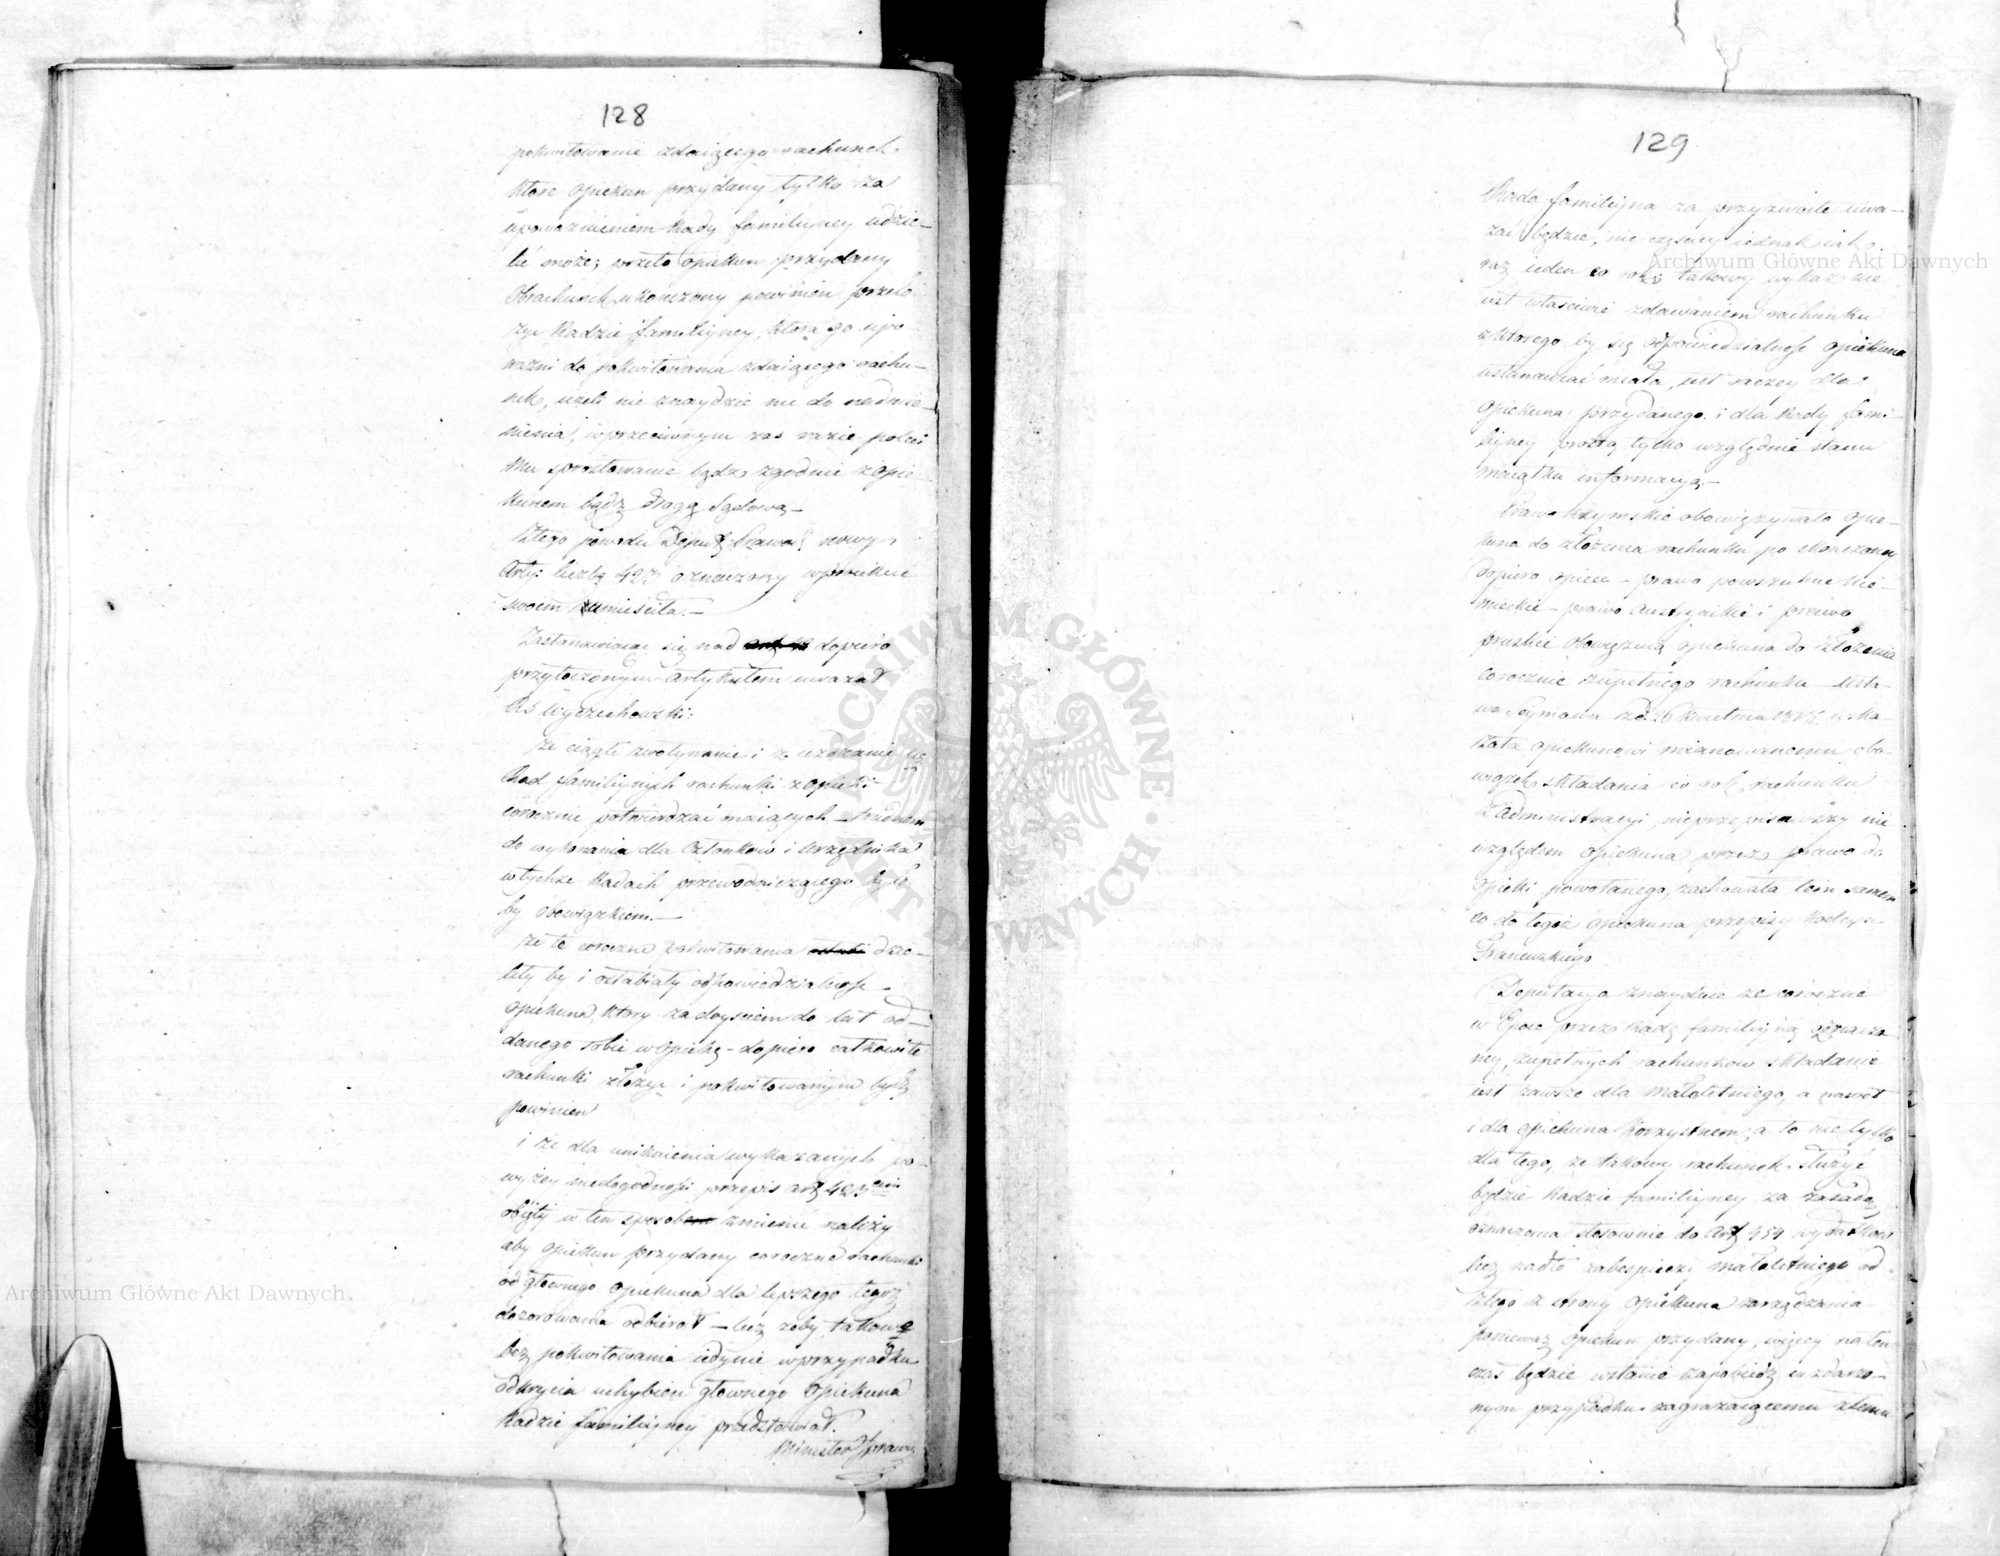 128
pokwitowanie zdaiącego rachunek.
ktore opiekun przydany tylko za
upoważnieniem Rady familiyney udzie-
lić może; przeto opiekun przydany
Obrachunek ukończony powinien przeło-
żyć Radzie familiyney, która go upo-
ważni do pokwitowania zdaiącego rachu-
nek, ieżeli nie znaydzie nic do nadmie-
nienia, w przeciwnym zas razie poleci
mu sprostowanie bądz zgodnie z opie-
kunem bądz drogą Sądową-
Ztego powodu Deput: Prawod: nowy
Arty: liczbą 423 oznaczony w proiekcie
swoim umieściła.-
Zastanawiaiąc się nad dopiero
przytoczonym artykułem uważał
JW Wyczechowski:
że ciągłe zwoływanie i ziezdzanie się
Rad familiynych rachunki z opieki
corocznie potwierdzać maiących - trudnem
do wykonania dla Członków i Urzędnika
w tychże Radach przewodniczącego było
by obowiązkiem.-
że te coroczne pokwitowania dzie-
liły by i osłabiały odpowiedzialnosc
opiekuna, ktory za doysciem do lat od-
danego sobie w opiekę - dopiero całkowite
rachunki złożyć i pokwitowanym bydź
powinien
i że dla uniknienia wykazanych po-
wyżey niedogodności przepis art 423em
obięty w ten sposob zmienić należy
aby opiekun przydany coroczne rachunki
od głownego opiekuna dla lepszego tegoż
dozorowania odbierał - lecz żeby takowe
bez pokwitowania iedynie w przypadku
odkrycia uchybień głownego opiekuna
Radzie familiyney przedstawiał.
Minister Spraw:
129
Rada familiyna za przyzwoite uwa-
żać będzie, nie częściey iednak iak
raz ieden co rok; takowy wykaz nie
iest własciwie zdawaniem rachunku
z którego by się odpowiedzialnosc opiekuna
ustanawiać miała, iest raczey dla
opiekuna przydanego i dla Rady fami-
liyney prostą tylko względnie stanu
maiątku informacyą.-
Prawo Rzymskie obowiązywało opie-
kuna do złożenia rachunku po skonczoney
dopiero opiece - prawo powszechne Nie-
mieckie - prawo Austryackie i prawo
pruskie obowięzuią opiekuna do złożenia
corocznie zupełnego rachunku - Usta-
wa Seymowa z d. 26 kwietnia 1818. wska-
zała opiekunowi mianowanemu obo-
wiązek składania co rok rachunku
z administracyi, nieprzepisawszy nic
względem opiekuna przez prawo do
opieki powołanego, zachowała tem samem
co do tegoż opiekuna przepisy Kodexu
Francuzkiego
Deputacya znayduie że coroczne
w Epoce przez Radę familiyną oznaczo-
ney, zupełnych rachunków składanie
iest zawsze dla małoletniego, a nawet
i dla opiekuna korzystnem, a to nie tylko
dla tego, że takowy rachunek służyć
będzie Radzie familiyney za zasadę
oznaczenia stosownie do Art 454 wydatków
lecz nadto zabespieczy małoletniego od
złego ze strony opiekuna zarządzania
ponieważ opiekun przydany, więcey na ten
czas będzie w stanie zapobiedz w zdarzo-
nym przypadku zagrażaiącemu złemu
Archiwum Główne Akt Dawnych
Archiwum Główne Akt Dawnych
ARCHIWUM GŁÓWNE AKT DAWNYCH